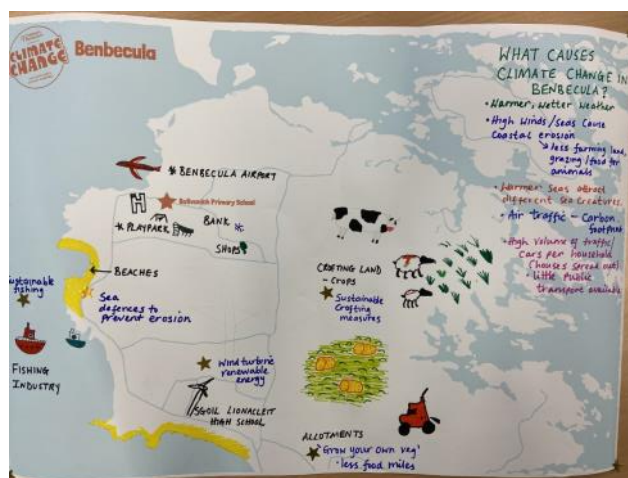 CLIMATE
CHANGE
Benbecula
WHAT CAUSES
CLIMATE CHANGE IN
BENBECULA?
• Warmer, wetter weather
• High Winds/Seas cause
Coastal erosion
↘ less farming land,
grazing/food for
animals
• Warmer seas attract
different sea creatures.
• Air traffic – Carbon
footprint
• High volume of traffic/
cars per household
(houses spread out)
• little public
transport available
* BENBECULA AIRPORT
Balivanich Primary School
* PLAYPARK
BANK *
SHOPS
BEACHES
Sustainable
fishing
Sea
defences to
prevent erosion
FISHING
INDUSTRY
CROFTING LAND
- CROPS
Sustainable
Crofting
measures
Wind turbine
renewable
energy
SGOIL LIONACLEIT
HIGH SCHOOL
ALLOTMENTS
'Grow your own veg'
• less food miles